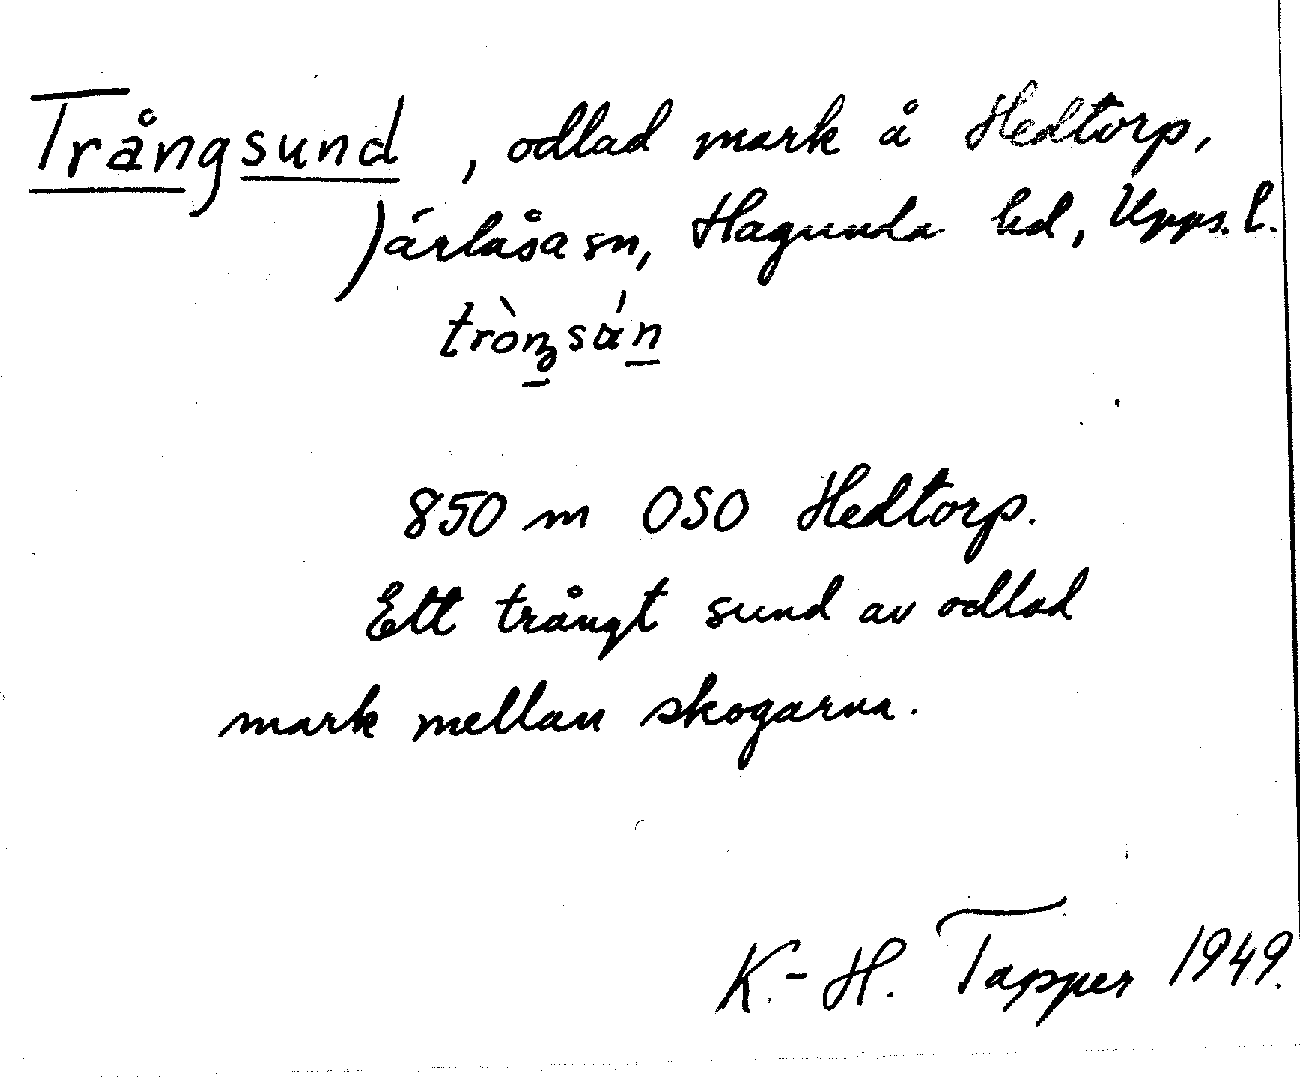 Trångsund, odlad mark å Hedtorp,
Järlåsa sn, Hagunda hd, Upps. l.
tròŋsán
850 m OSO Hedtorp.
Ett trångt sund av odlad
mark mellan skogarna.
K.-H. Tapper 1949.